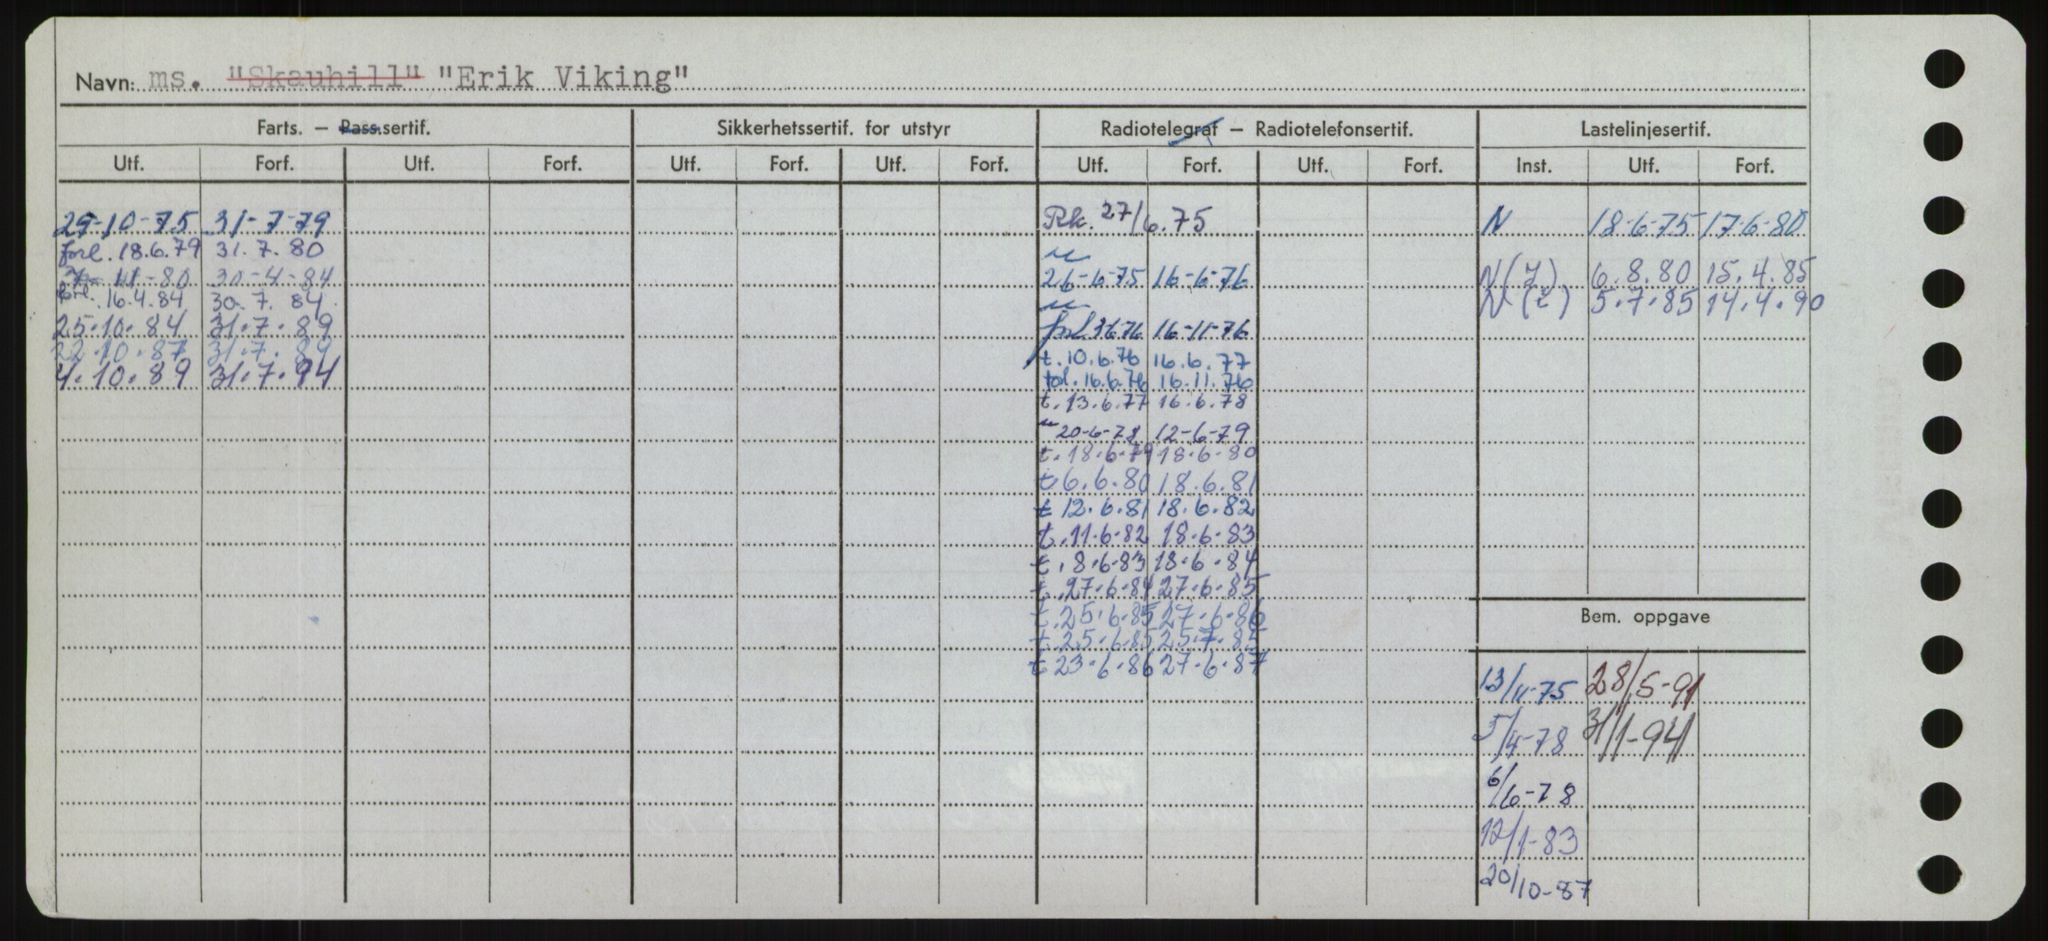 Navn: ms. "Skauhill" "Erik Viking"
Farts. — Pass.sertif. Sikkerhetssertif. for utstyr Radiotelegraf — Radiotelefonsertif. Lastelinjesertif.
Utf. Forf. Utf. Forf. Utf. Forf. Utf. Forf. Utf. Forf. Utf. Forf. Inst. Utf. Forf.
29-10-75 31-7-79
forl. 18.6.79 31.7.80
11-80 30-4-84
forl. 16.4.84 30.7.84
25.10.84 31.7.89
22.10.87 31.7.89
4.10.89 31.7.94
Rk. 27/6.75
26-6-75 16-6-76
forl 3676 16-11-76
t. 10.6.76 16.6.77
forl. 16.6.76 16.11.76
t. 13.6.77 16.6.78
" 20-6-78 12-6-79
t. 18.6.79 18.6.80
t 6.6.80 18.6.81
t 12.6.81 18.6.82
t. 11.6.82 18.6.83
t. 8.6.83 18.6.84
t. 27.6.84 27.6.85
t. 25.6.85 27.6.86
t 25.6.85 25.7.85
t 23.6.86 27.6.87
N 18-6-75 17-6-80
N( ) 6.8.80 15.4.85
N( ) 5.7.85 14.4.90
Bem. oppgave
13/11-75 28/5-91
5/4-78 3/1-94
6/6-78
12/1-83
20/10-87